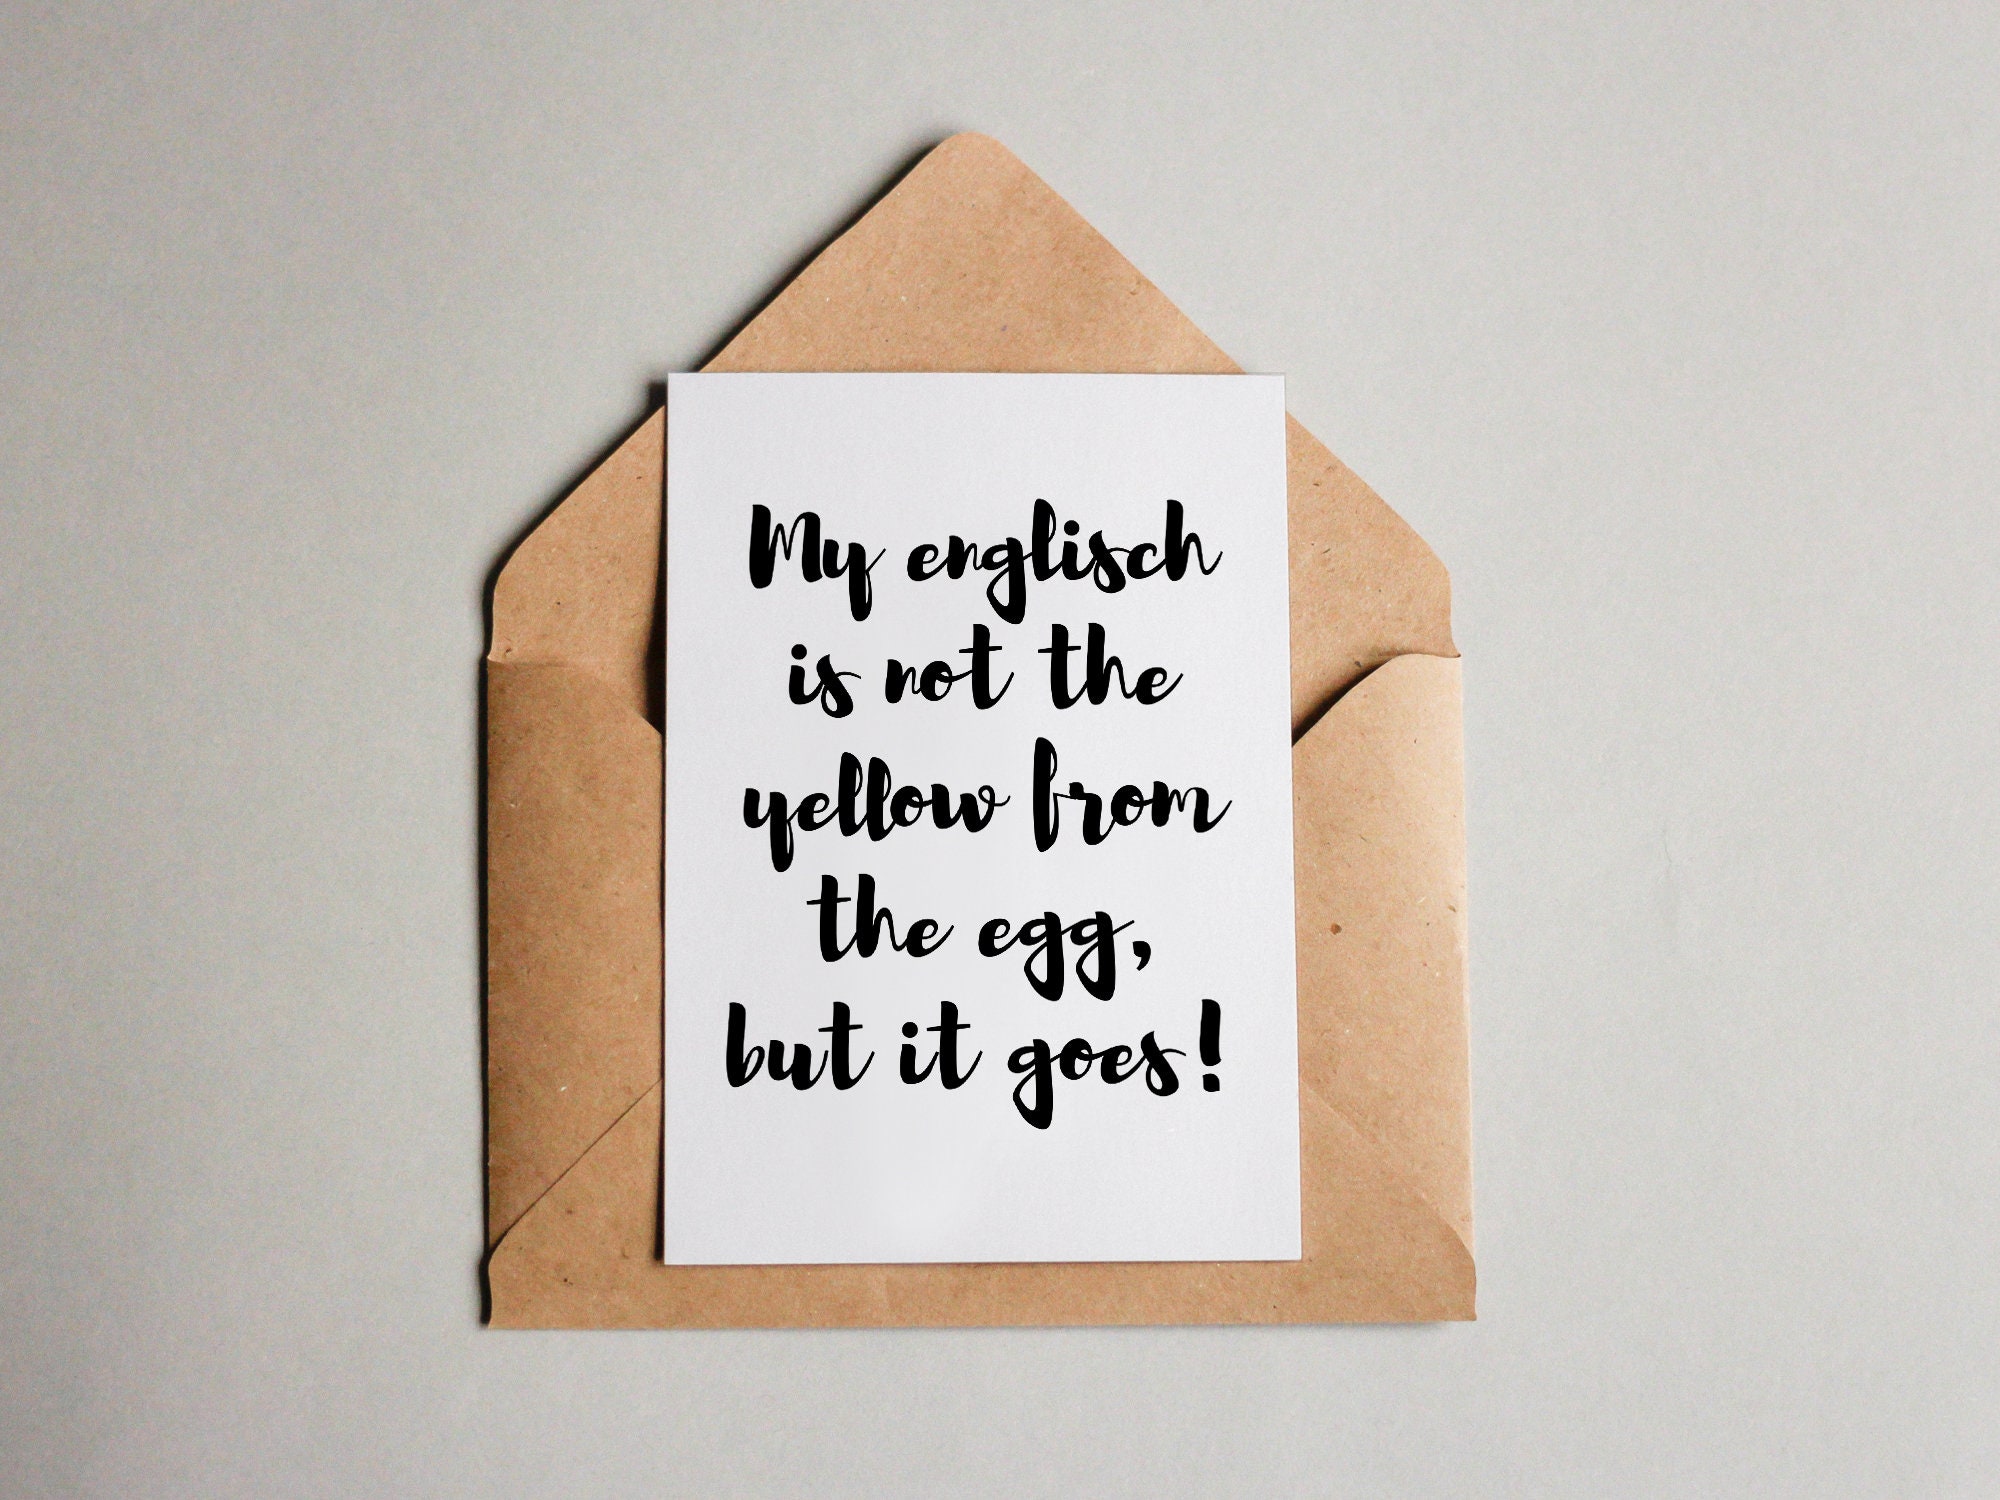 My englisch
is not the
yellow from
the egg,
but it goes!